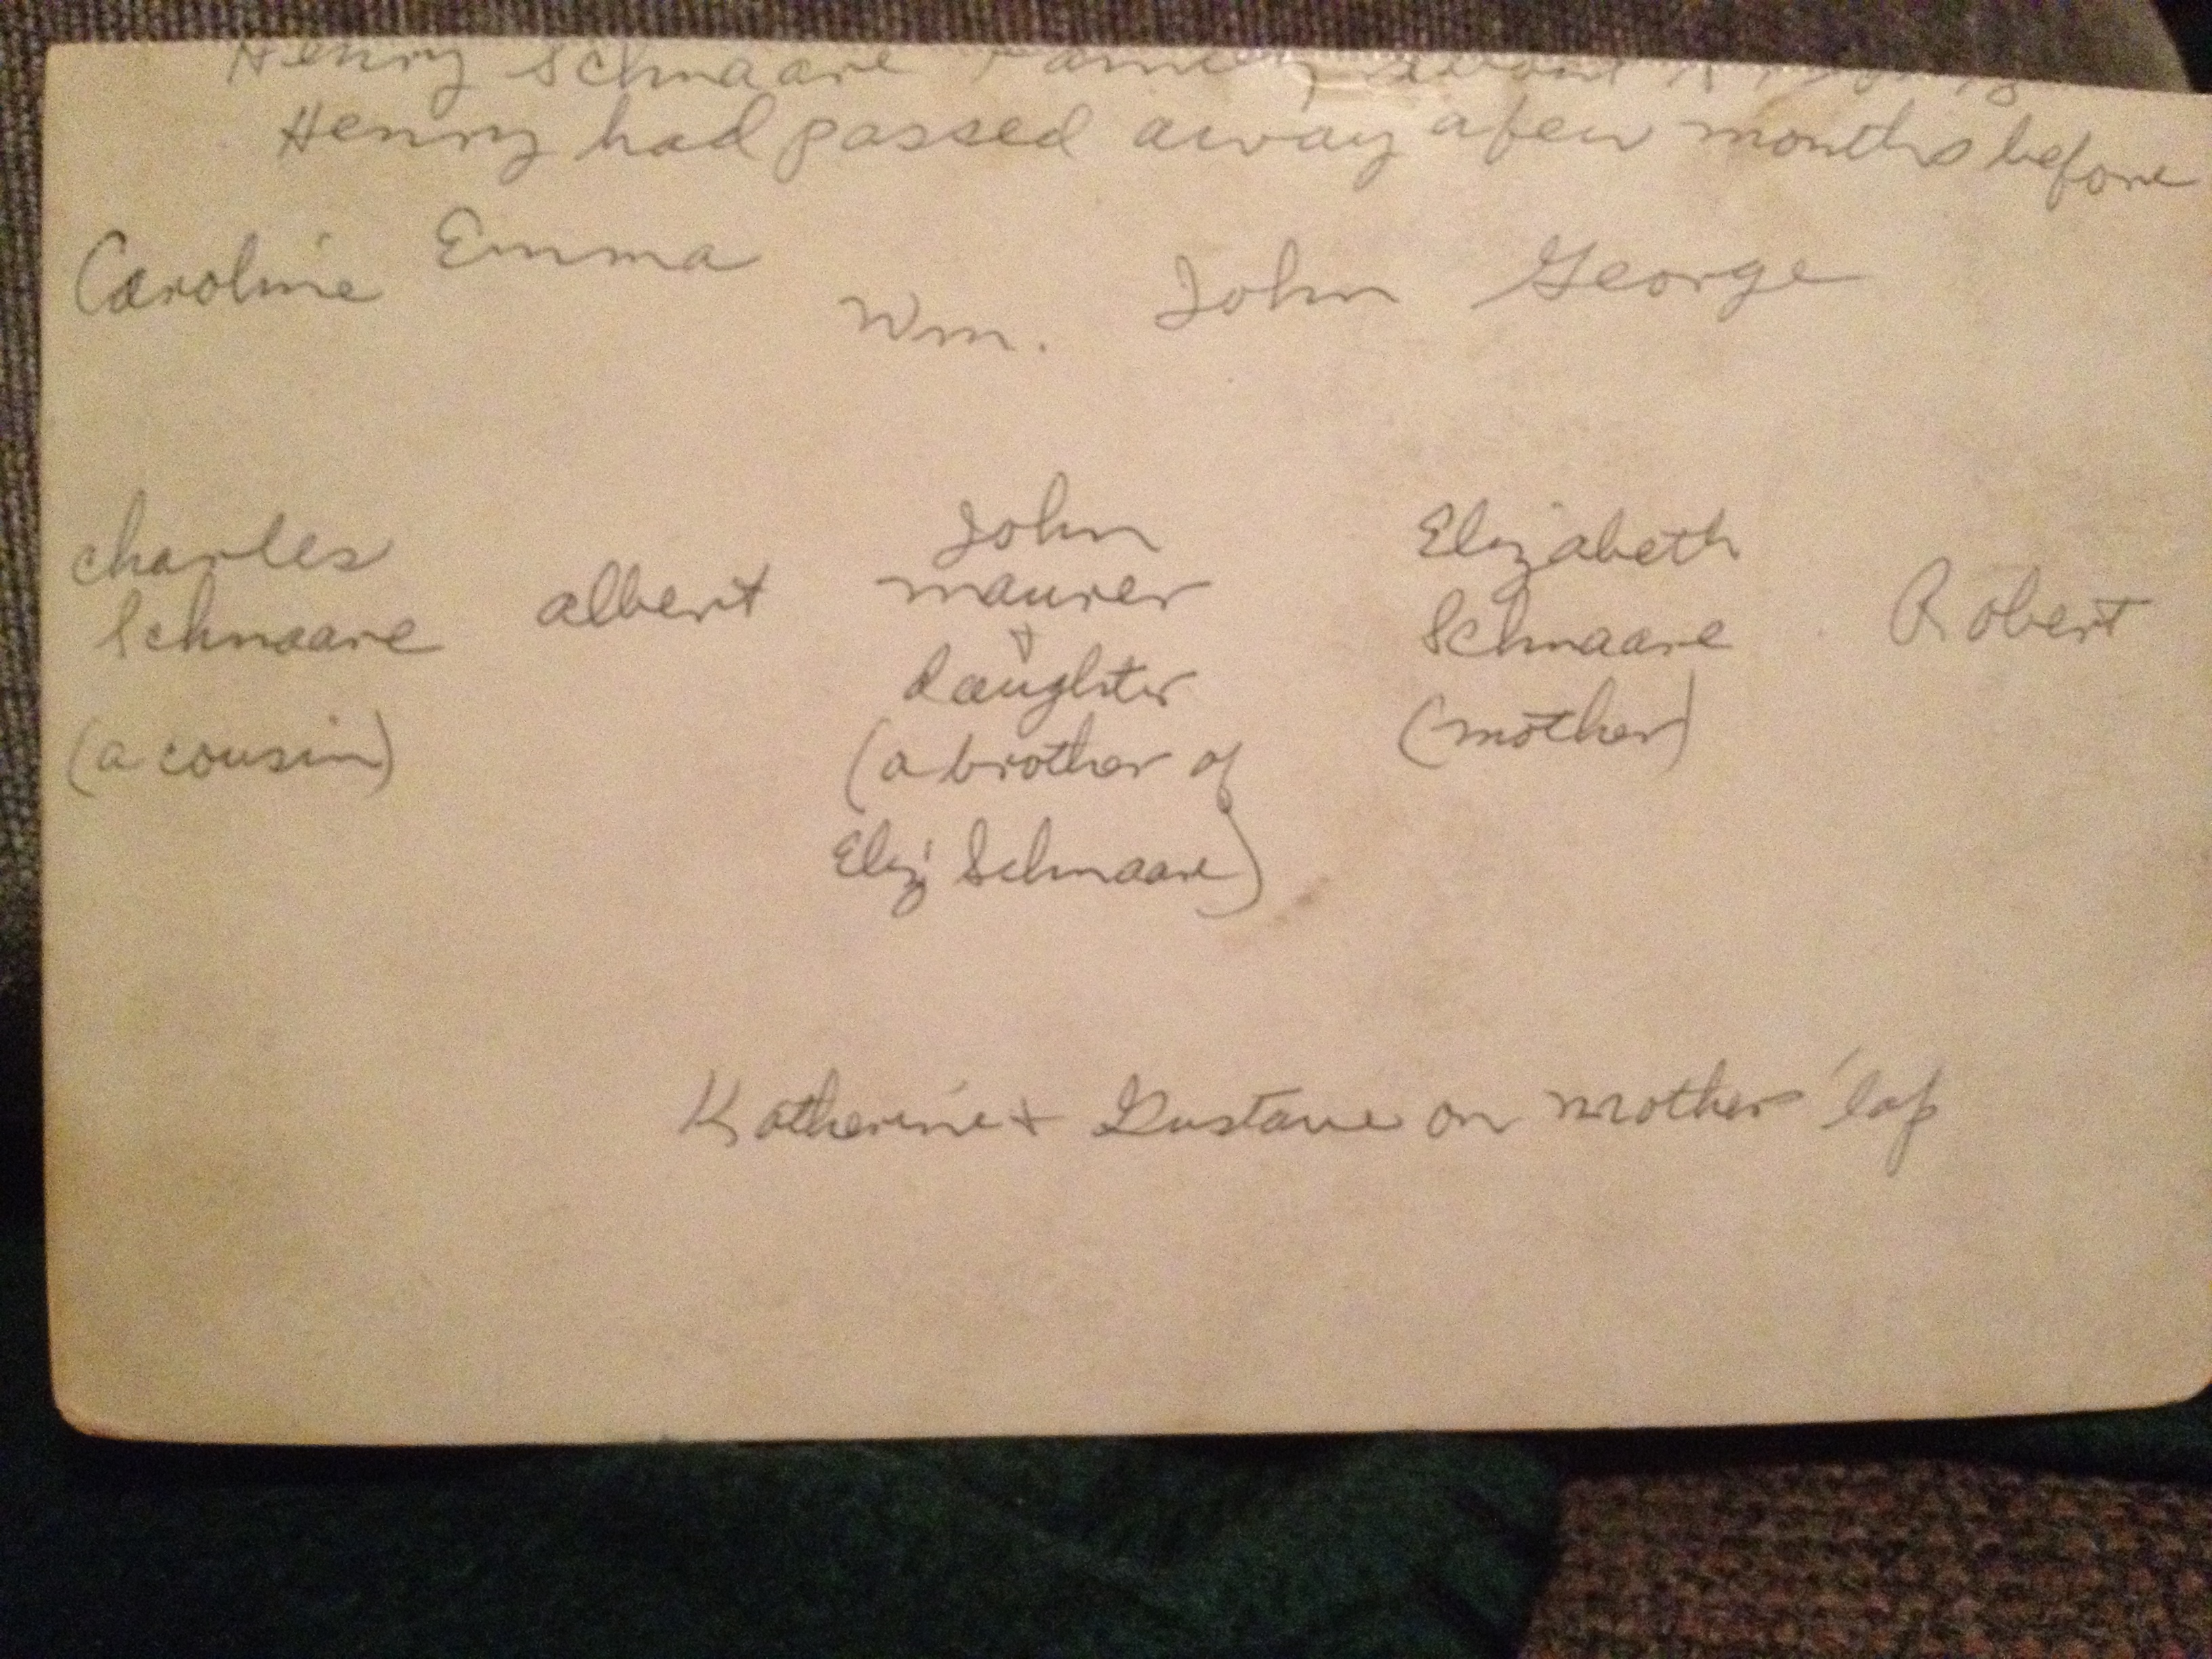 Henry Schnaare Family about
Henry had passed away a few months before
Caroline Emma Wm. John George
Charles Schnaare (a cousin)
albert
John maurer + daughter (a brother of Eliz Schnaare)
Elizabeth Schnaare (mother)
Robert
Katherine + Gustave on mother' lap